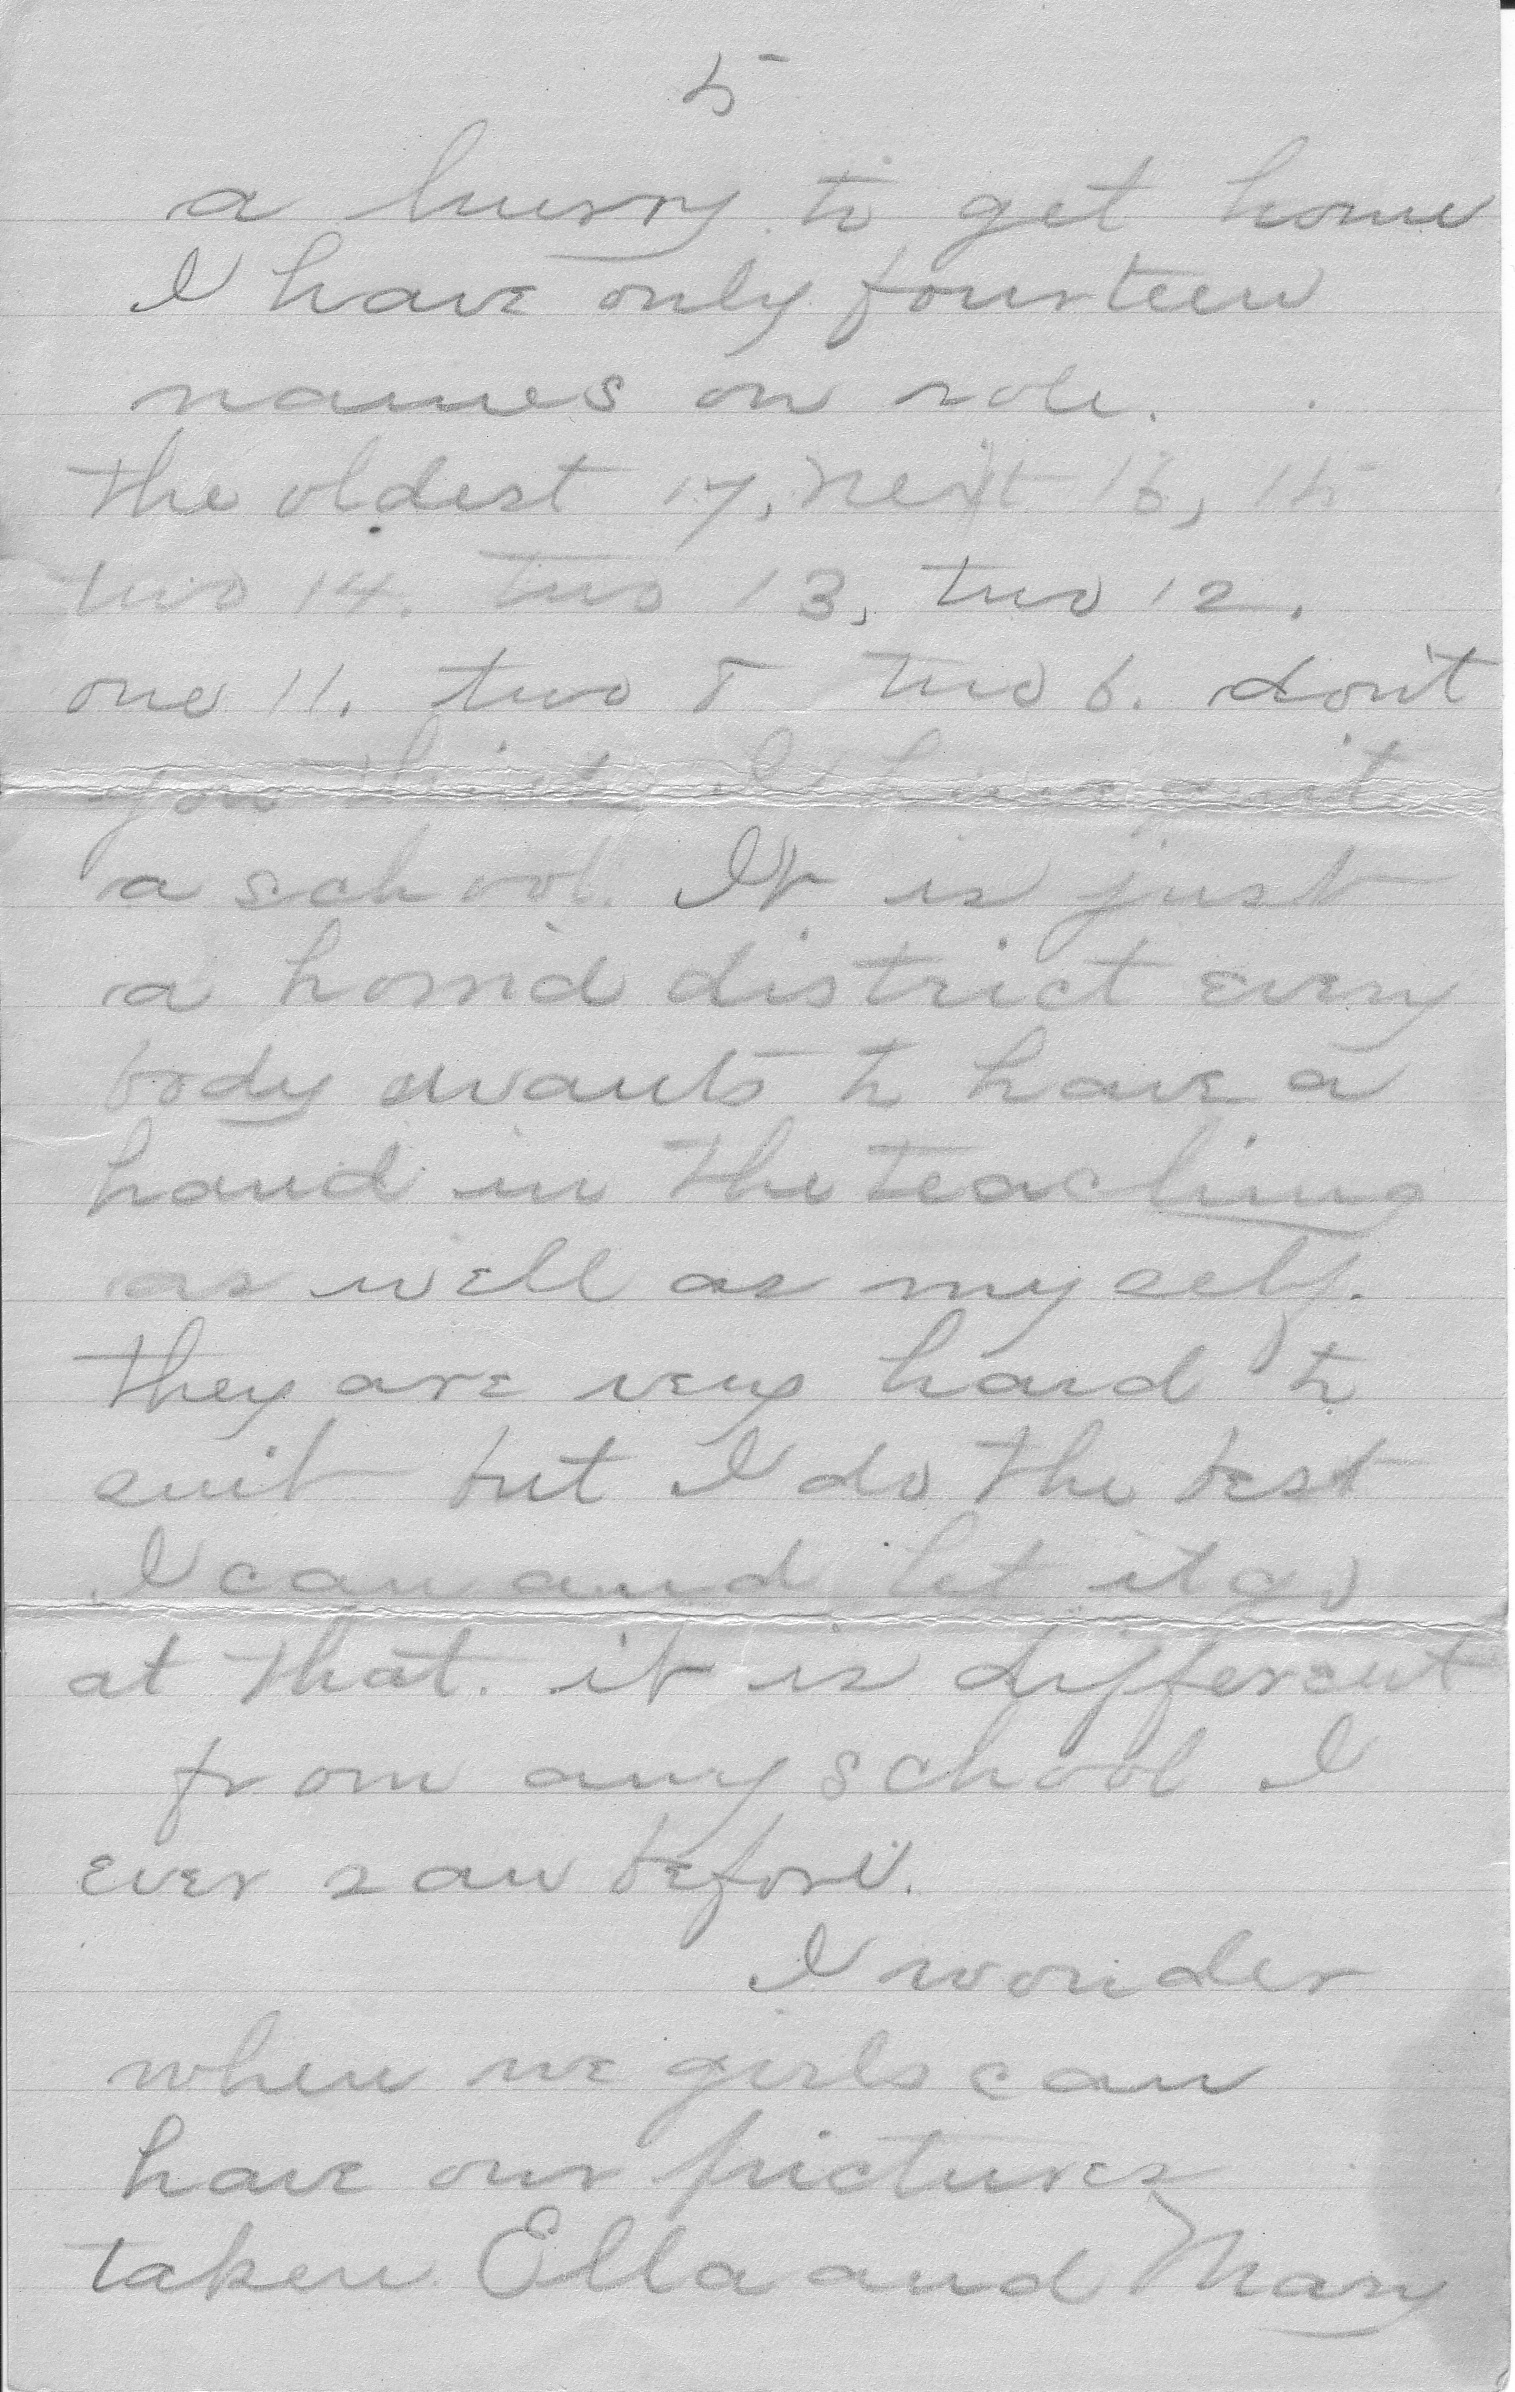 5
a hurry to get home
I have only fourteen
names on role.
the oldest 17, next 16, 15
two 14. two 13, two 12.
one 11. two 8 two 6. don't
you think I have quite
a school. It is just
a horrid district every
body wants to have a
hand in the teaching
as well as my self.
they are very hard to
suit but I do the best
I can and let it go
at that. it is different
from any school I
ever saw before.
I wonder
when we girls can
have our pictures
taken Ella and Mary